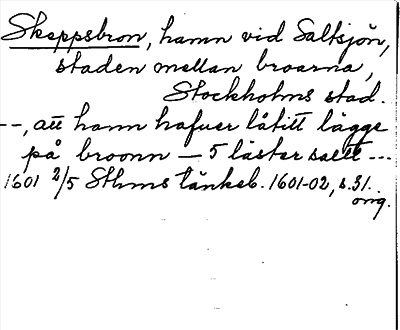 Skeppsbron, hamn vid Saltsjön,
staden mellan broarna,
Stockholms stad.
--, att hann hafuer låtitt lägge
på broonn – 5 läster saltt ---
1601 2/5 Sthms tänkeb. 1601-02, s. 31.
orig.